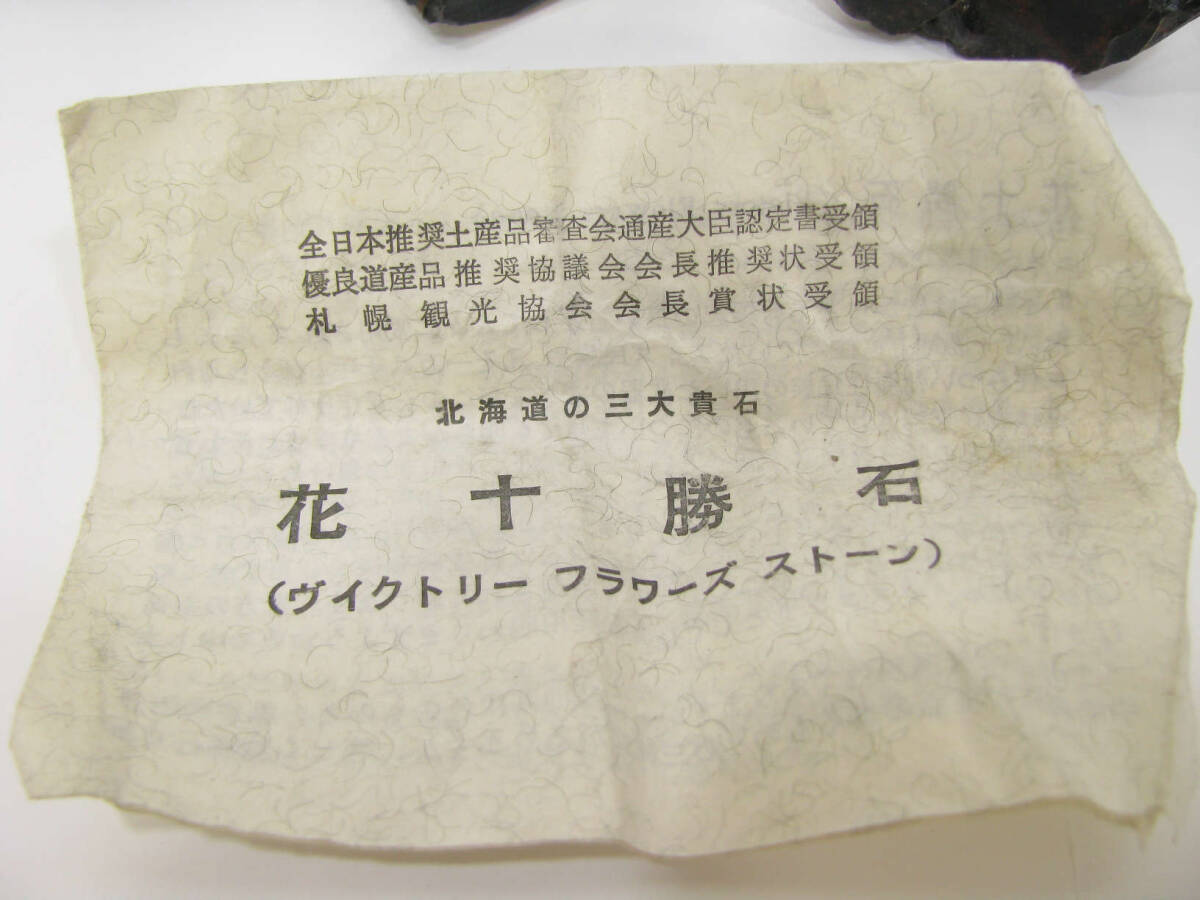 全日本推奨土産品審査会通産大臣認定書受領
優良道産品推奨協議会会長推奨状受領
札幌観光協会会長賞状受領
北海道の三大貴石
花十勝石
(ヴイクトリー フラワーズ ストーン)